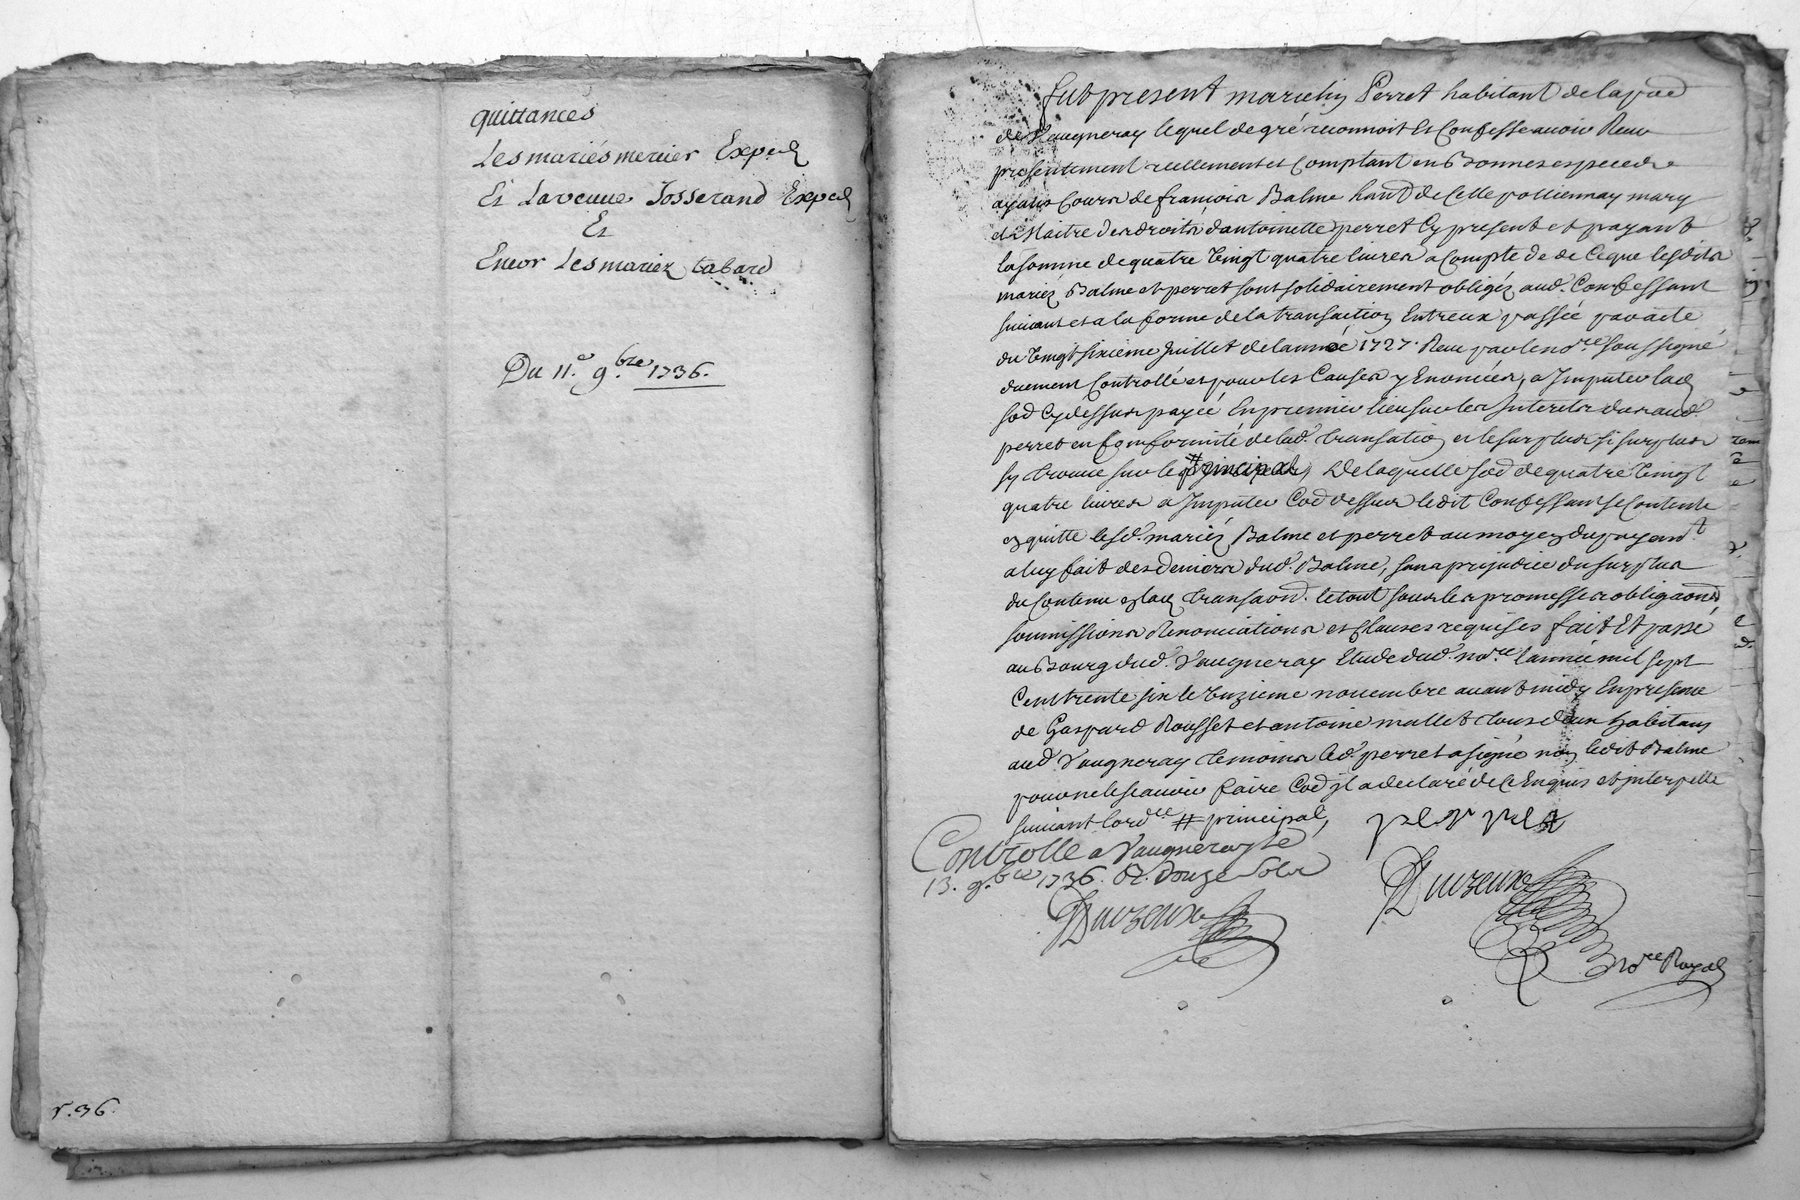 quittances
Les mariés mercier Exped
Et La veuue Josserand Exped
Et
Encor Les mariez tabard
Du 11.e 9.bre 1736.
r.36.
fut present Perret habitant de la parr
de Vaugneray lequel de gré reconnoit Et Confesse auoir Receu
presentement reellement et Comptant en Bonnes especes
ayans Cours de françois Balme habt de Celle polliennay mary
et Maitre des droits d'antoinette perret Cy present et payant
la somme de quatre Vingt quatre liures a Compte de de Ce que lesdits
mariez Balme et perret sont solidairement obligéz aud. Confessant
suiuant et a la forme de la transaction Entreux passée par acte
du Vingt sixieme Juillet de lannée 1727. Receu par le no.re soussigné
duement Controllé et pour les Causes y Enoncées, a Imputer lad
sod Cy dessus payée En premier lieu sur les Interets dus aud.
perret en Conformité de lad. transation et le surplus si surplus
sy trouue sur le principal, De laquelle sod de quatre Vingt
quatre liures a Imputer Cod dessus ledit Confessant se Contente
et quitte lesd. mariéz Balme et perret au moyen du payem.t
a luy fait des deniers dud. Balme, sans prejudice du surplus
du Contenu en lad transaon. le tout sous les promesses obligaons
soumissions Renonciations et Clauses requises fait Et passé
au Bourg dud. Vaugneray Etude dud. no.re l'année mil sept
Cent trente six le Unzieme nouembre auant midy En presence
de Gaspard Rousset et antoine mallet tous deux habitans
aud. Vaugneray temoins led. perret a signé non ledit Balme
pour ne le scauoir faire Cod jl a declaré de ce Enquis et interpellé
suiuant lord.ce # principal,
perret
Controllé a Vaugneray le
13. 9.bre 1736. R. douze sols
Duvzeux
Duvzeux
no.re Royal